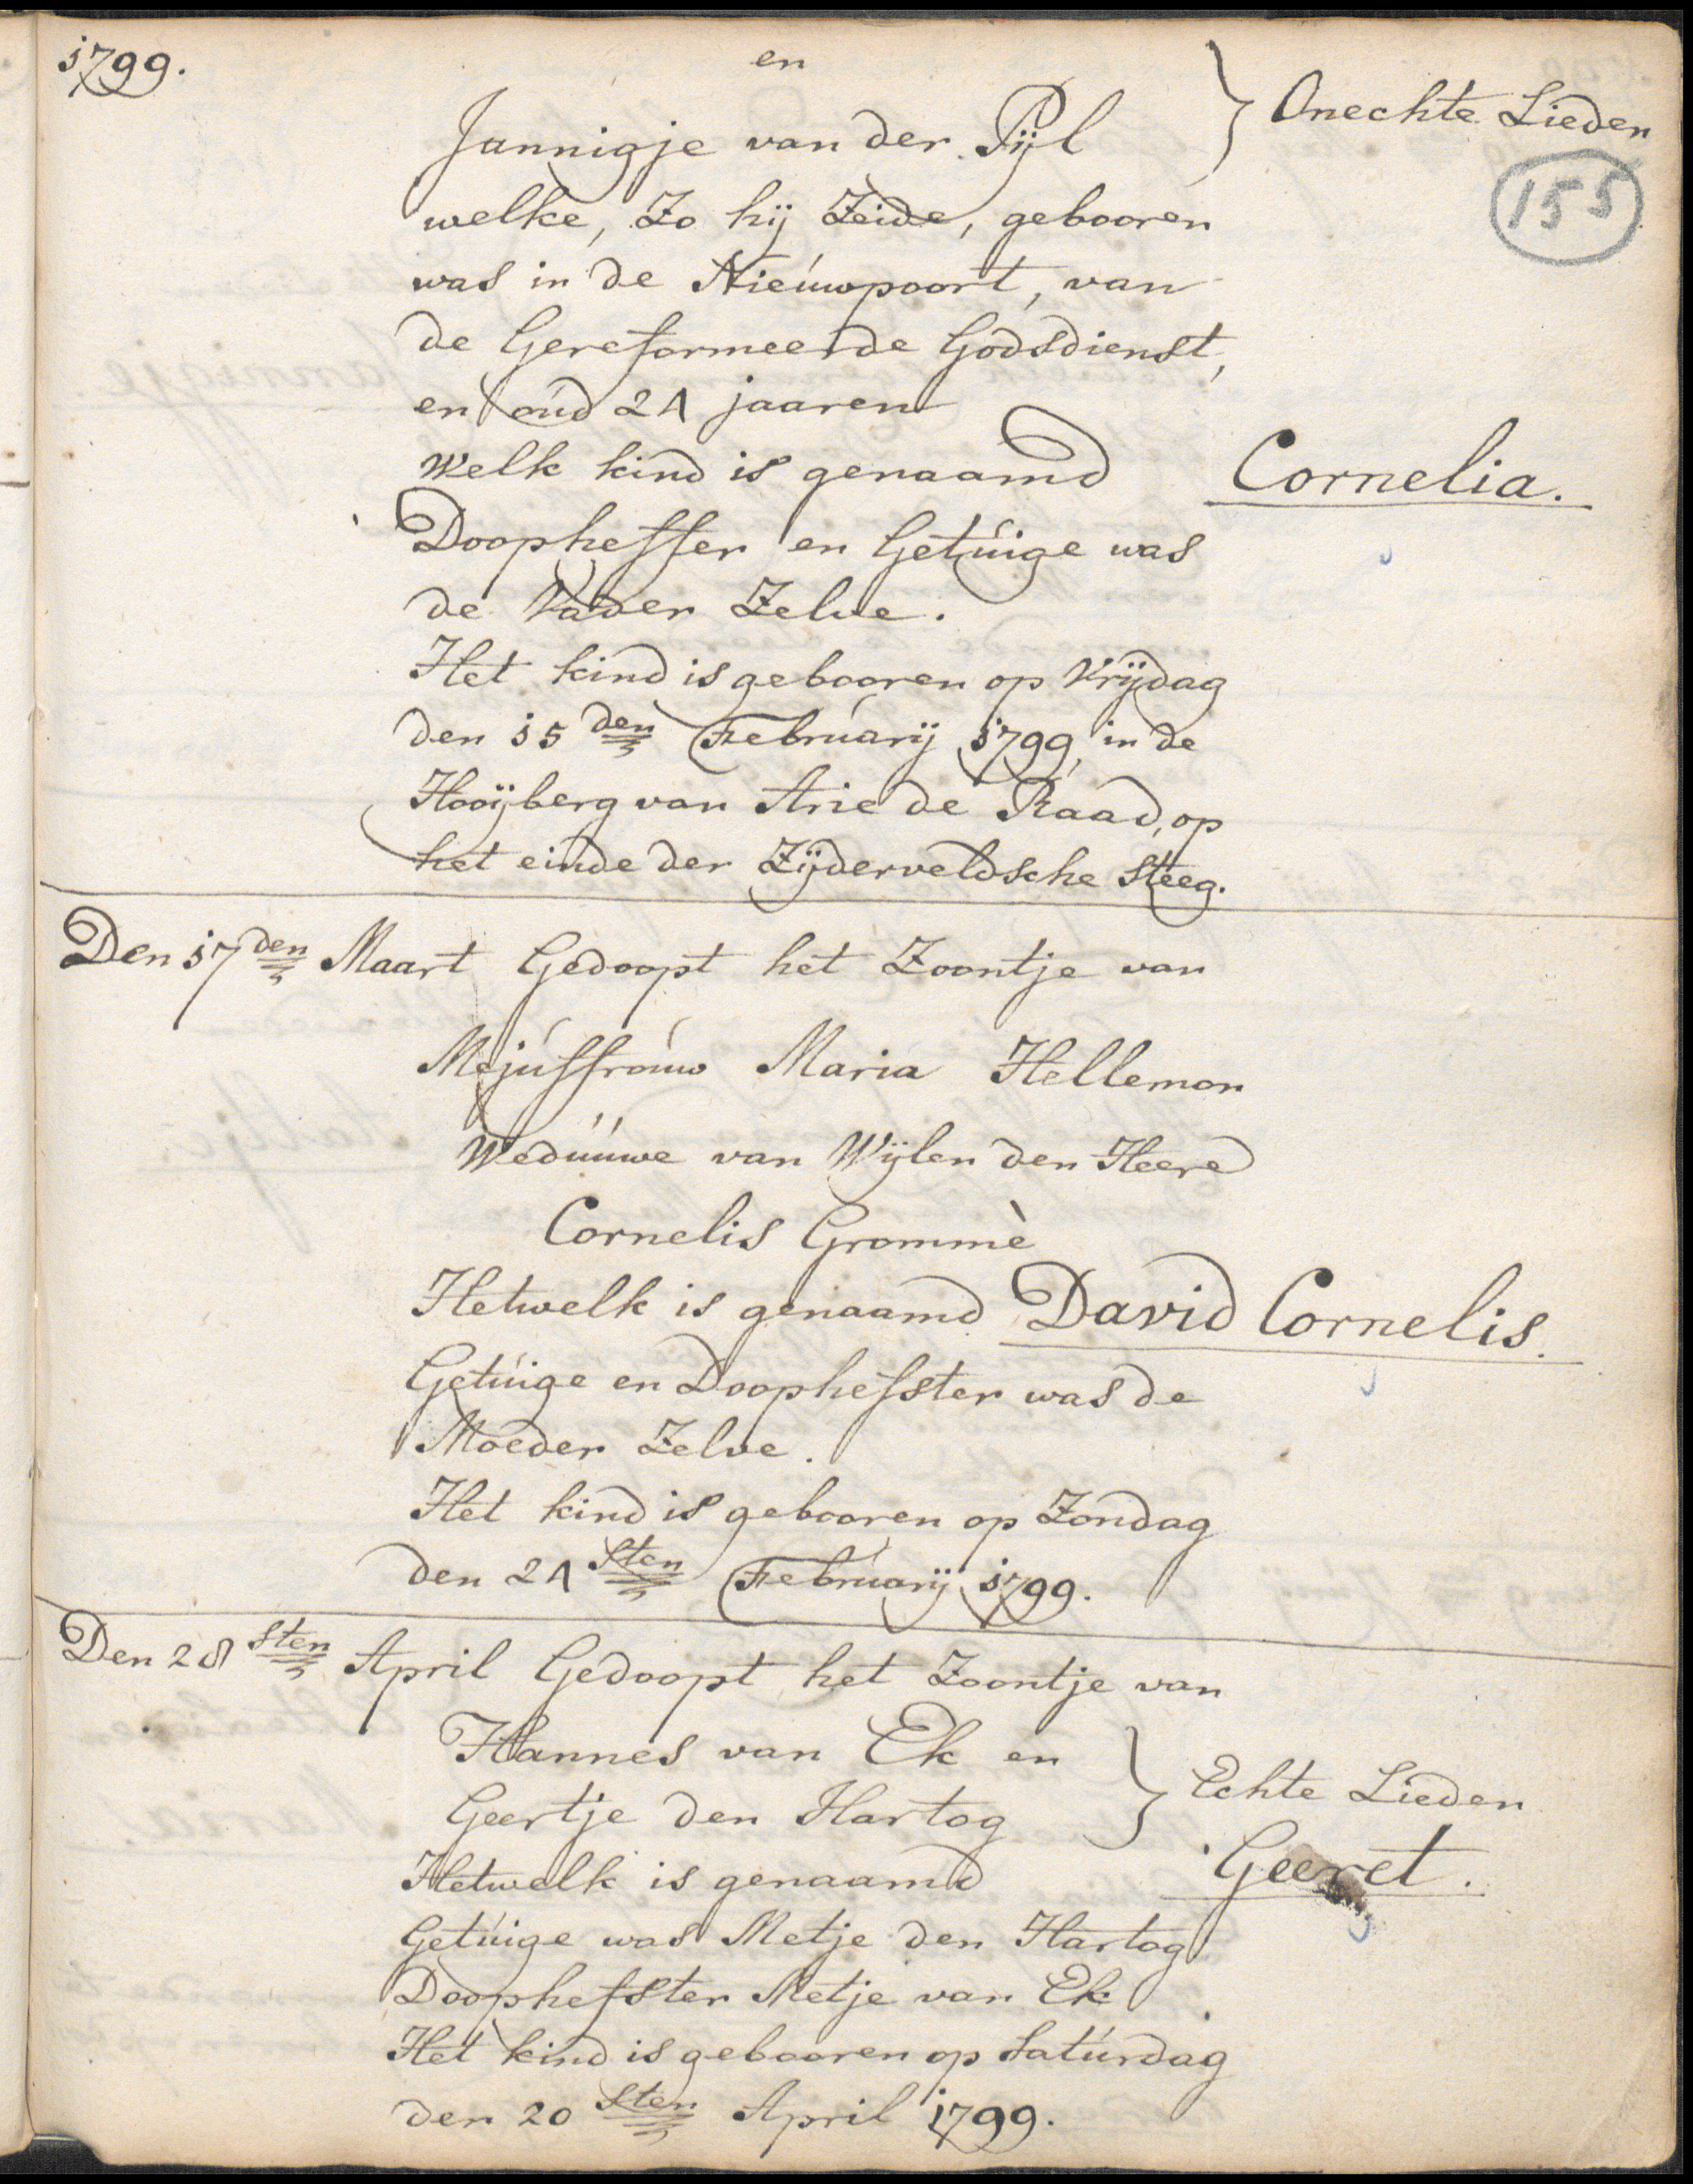 1799.
en
Jannigje van der Pijl } Onechte Lieden
155
welke, Zo hij Zeide, gebooren
was in de Nieuwpoort, van
de Gereformeerde Godsdienst,
en oud 24 jaaren
Welk kind is genaamd Cornelia.
Doopheffer en Getuige was
de Vader Zelve.
Het kind is gebooren op Vrijdag
den 15den February 1799, in de
Hooijberg van Arie de Raad, op
het einde der Zijderveldsche Steeg.
Den 17den Maart Gedoopt het Zoontje van
Mejuffrouw Maria Hellemon
Weduuwe van Wijlen den Heere
Cornelis Grommè
Hetwelk is genaamd David Cornelis.
Getuige en Doophefster was de
Moeder Zelve.
Het kind is gebooren op Zondag
den 24sten February 1799.
Den 28sten April Gedoopt het Zoontje van
Hannes van Ek en
Geertje den Hartog } Echte Lieden
Hetwelk is genaamd Geeret.
Getuige was Metje den Hartog
Doophefster Metje van Ek.
Het kind is gebooren op Saturdag
den 20sten April 1799.